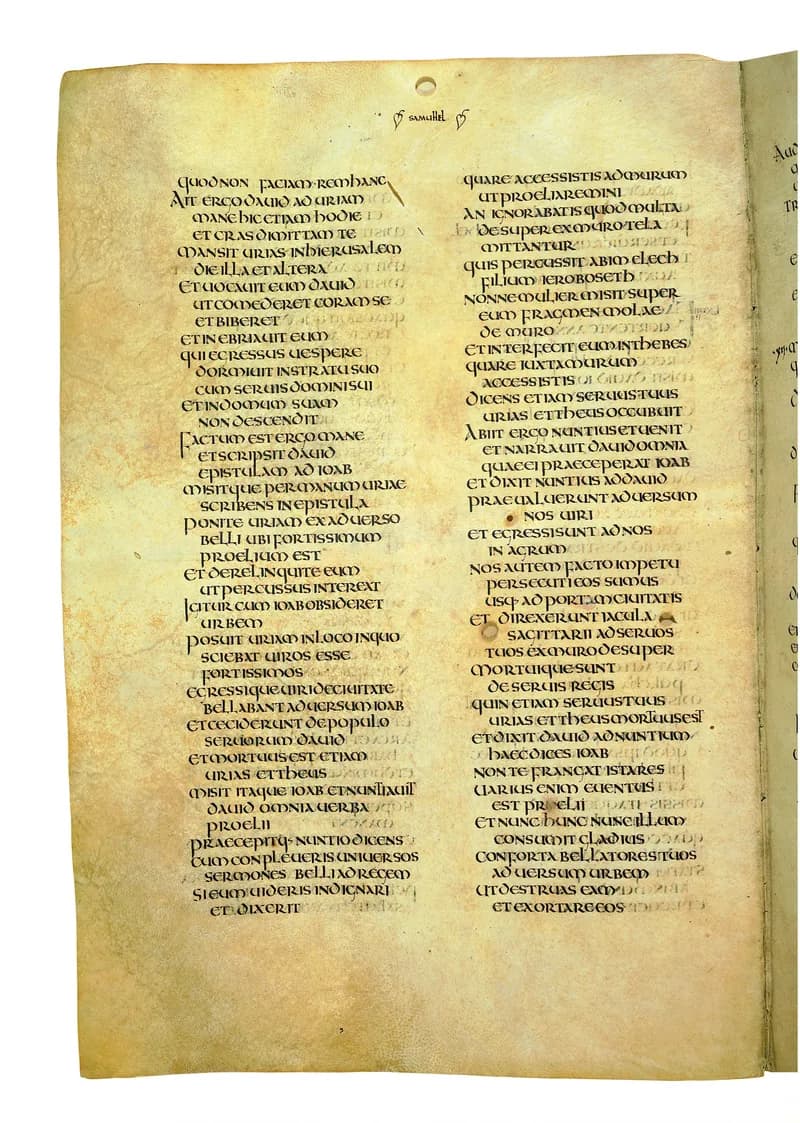 SAMUHEL
QUOD NON FACIAM REM HANC
AIT ERGO DAUID AD URIAM
MANE HIC ETIAM HODIE
ET CRAS DIMITTAM TE
MANSIT URIAS IN HIERUSALEM
DIE ILLA ET ALTERA
ET UOCAUIT EUM DAUID
UT COMEDERET CORAM SE
ET BIBERET
ET INEBRIAUIT EUM
QUI EGRESSUS UESPERE
DORMIUIT IN STRATU SUO
CUM SERUIS DOMINI SUI
ET IN DOMUM SUAM
NON DESCENDIT
FACTUM EST ERGO MANE
ET SCRIPSIT DAUID
EPISTULAM AD IOAB
MISITQUE PER MANUM URIAE
SCRIBENS IN EPISTULA
PONITE URIAM EX ADUERSO
BELLI UBI FORTISSIMUM
PROELIUM EST
ET DERELINQUITE EUM
UT PERCUSSUS INTEREAT
IGITUR CUM IOAB OBSIDERET
URBEM
POSUIT URIAM IN LOCO IN QUO
SCIEBAT UIROS ESSE
FORTISSIMOS
EGRESSIQUE UIRI DE CIUITATE
BELLABANT ADUERSUM IOAB
ET CECIDERUNT DE POPULO
SERUORUM DAUID
ET MORTUUS EST ETIAM
URIAS ETTHEUS
MISIT ITAQUE IOAB ET NUNTIAUIT
DAUID OMNIA UERBA
PROELII
PRAECEPITQ· NUNTIO DICENS
CUM CONPLEUERIS UNIUERSOS
SERMONES BELLI AD REGEM
SI EUM UIDERIS INDIGNARI
ET DIXERIT
QUARE ACCESSISTIS AD MURUM
UT PROELIAREMINI
AN IGNORABATIS QUOD MULTA
DESUPER EX MURO TELA
MITTANTUR
QUIS PERCUSSIT ABIMELECH
FILIUM IEROBOSETH
NONNE MULIER MISIT SUPER
EUM FRAGMEN MOLAE
DE MURO
ET INTERFECIT EUM IN THEBES
QUARE IUXTA MURUM
ACCESSISTIS
DICENS ETIAM SERUUS TUUS
URIAS ETTHEUS OCCUBUIT
ABIIT ERGO NUNTIUS ET UENIT
ET NARRAUIT DAUID OMNIA
QUAE EI PRAECEPERAT IOAB
ET DIXIT NUNTIUS AD DAUID
PRAEUALUERUNT ADUERSUM
NOS UIRI
ET EGRESSI SUNT AD NOS
IN AGRUM
NOS AUTEM FACTO IMPETU
PERSECUTI EOS SUMUS
USQ· AD PORTAM CIUITATIS
ET DIREXERUNT IACULA
SAGITTARII AD SERUOS
TUOS EX MURO DESUPER
MORTUIQUE SUNT
DE SERUIS REGIS
QUIN ETIAM SERUUS TUUS
URIAS ETTHEUS MORTUUS EST
ET DIXIT DAUID AD NUNTIUM
HAEC DICES IOAB
NON TE FRANGAT ISTA RES
UARIUS ENIM EUENTUS
EST PROELII
ET NUNC HUNC NUNC ILLUM
CONSUMIT GLADIUS
CONFORTA BELLATORES TUOS
ADUERSUM URBEM
UT DESTRUAS EAM
ET EXORTARE EOS